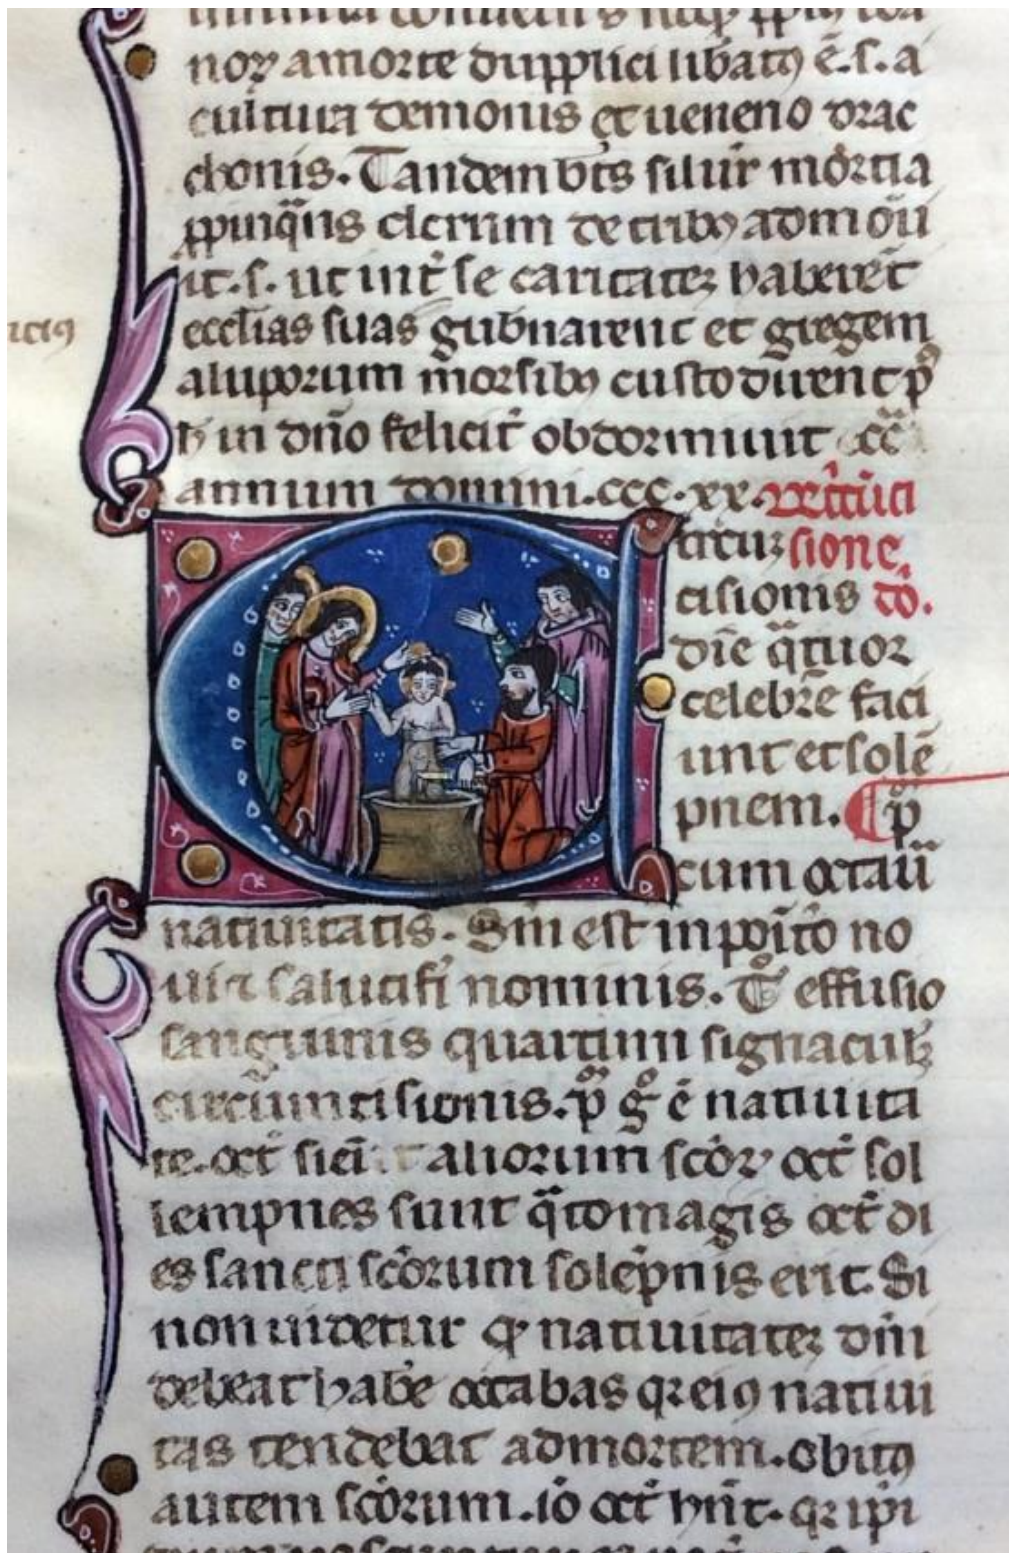 noꝝ a morte duppl̄ici lib̾atꝯ ē.s.a
cultura demonis et ueneno drac
chonis. Tandem bt̄s siluīr morti a
ꝓpinq̄ns clerum de tribꝯ admōu
it.s. ut int̄ se caritateꝫ haberēt
eccl̄ias suas gub̾narent et gregem
a luporum morsibꝯ custodirent pꝰ
h̄ in dn̄o feliciꝉ obdormiuit
annum domini.ccc.xx.
circūcisione, dō.
cisionis
die q̄tuor
celebrē faci
unt et solē
pnem. p̄
cum octaū
natiuitatis. Sm̄ est inpōito no
ui ⁊ salutif̾i nominis. Tº effusio
sanguinis quartum signaculꝫ
circūmcisionis. p̄ gº ē natiuita
te. oct̄ aliorum sc̄oꝝ oct̄ sol
lempnes sunt q̄to magis oct̄ di
es sancti sc̄orum solēpnis erit. Si
non uidetur ꝙ natiuitateꝫ dn̄i
debeat hab̾e octabas qꝛ eiꝯ natiui
tas tendebat ad mortem. obitꝯ
autem sc̄orum. iō oct̄ hn̄t. qꝛ ip̄i